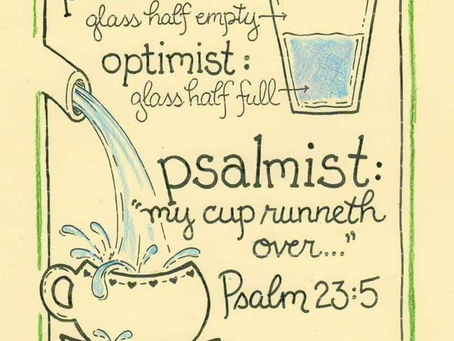 glass half empty
optimist:
glass half full
psalmist:
"my cup runneth
over..."
Psalm 23:5